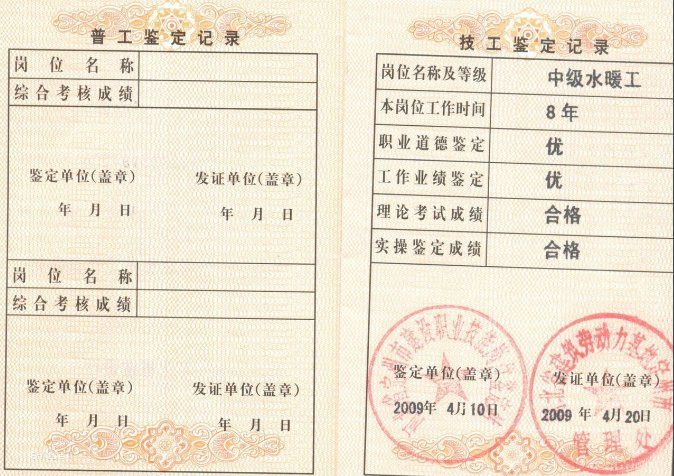 普工鉴定记录
岗位名称
综合考核成绩
鉴定单位(盖章)
发证单位(盖章)
年 月 日
年 月 日
岗位名称
综合考核成绩
鉴定单位(盖章)
发证单位(盖章)
年 月 日
年 月 日
技工鉴定记录
岗位名称及等级 中级水暖工
本岗位工作时间 8年
职业道德鉴定 优
工作业绩鉴定 优
理论考试成绩 合格
实操鉴定成绩 合格
鉴定单位(盖章)
2009年 4月10日
发证单位(盖章)
2009年 4月20日
管理处